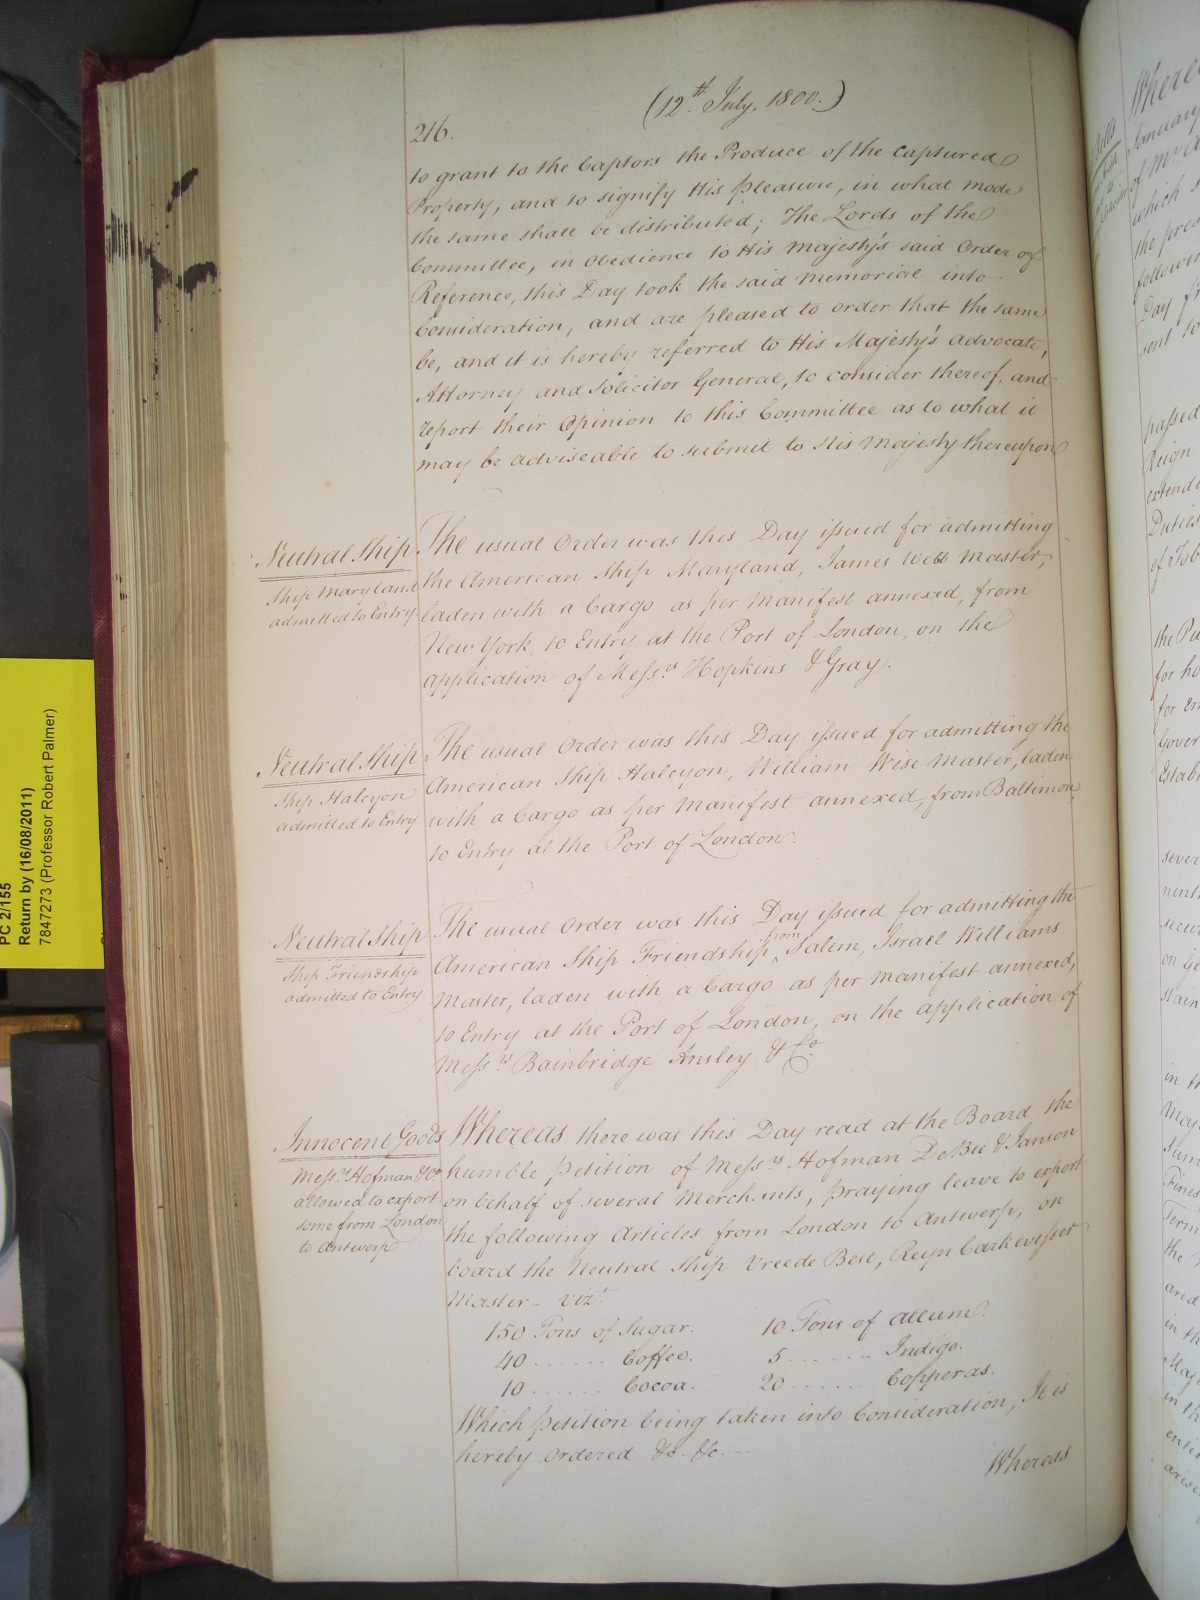 (12th July. 1800.)
216.
to grant to the Captors the Produce of the Captured
Property, and to signify His Pleasure, in what mode
the same shall be distributed; The Lords of the
Committee, in obedience to His Majesty's said Order of
Reference, this Day took the said Memorial into
Consideration, and are pleased to order that the same
be, and it is hereby referred to His Majesty's Advocate,
Attorney and Solicitor General, to consider thereof, and
report their Opinion to this Committee as to what it
may be adviseable to submit to His Majesty thereupon
Neutral Ship
Ship Maryland
admitted to Entry
The usual Order was this Day issued for admitting
the American Ship Maryland, James Webb Master,
laden with a Cargo as per Manifest annexed, from
New York, to Entry at the Port of London, on the
application of Messrs Hopkins & Gray.
Neutral Ship
Ship Halcyon
admitted to Entry
The usual Order was this Day issued for admitting the
American Ship Halcyon, William Wise Master, laden
with a Cargo as per Manifest annexed, from Baltimore,
to Entry at the Port of London.
Neutral Ship
Ship Friendship
admitted to Entry
The usual Order was this Day issued for admitting the
American Ship Friendship, from Salem, Israel Williams
Master, laden with a Cargo as per Manifest annexed,
to Entry at the Port of London, on the application of
Messrs Bainbridge Ansley & Co.
Innocent Goods
Messrs Hofman &Co
allowed to export
some from London
to Antwerp
Whereas there was this Day read at the Board the
humble Petition of Messrs Hofman DeBie & Janson
on behalf of several Merchants, praying leave to export
the following Articles from London to Antwerp, on
board the Neutral Ship Vreede Best, Reyn
Master - vizt
150 Tons of Sugar. 10 Tons of Allum.
40 ...... Coffee. 5 ...... Indigo.
10 ...... Cocoa. 20 ...... Copperas.
Which Petition being taken into Consideration, It is
hereby Ordered &c. &c. --
Whereas
PC 2/155
Return by (16/08/2011)
7847273 (Professor Robert Palmer)